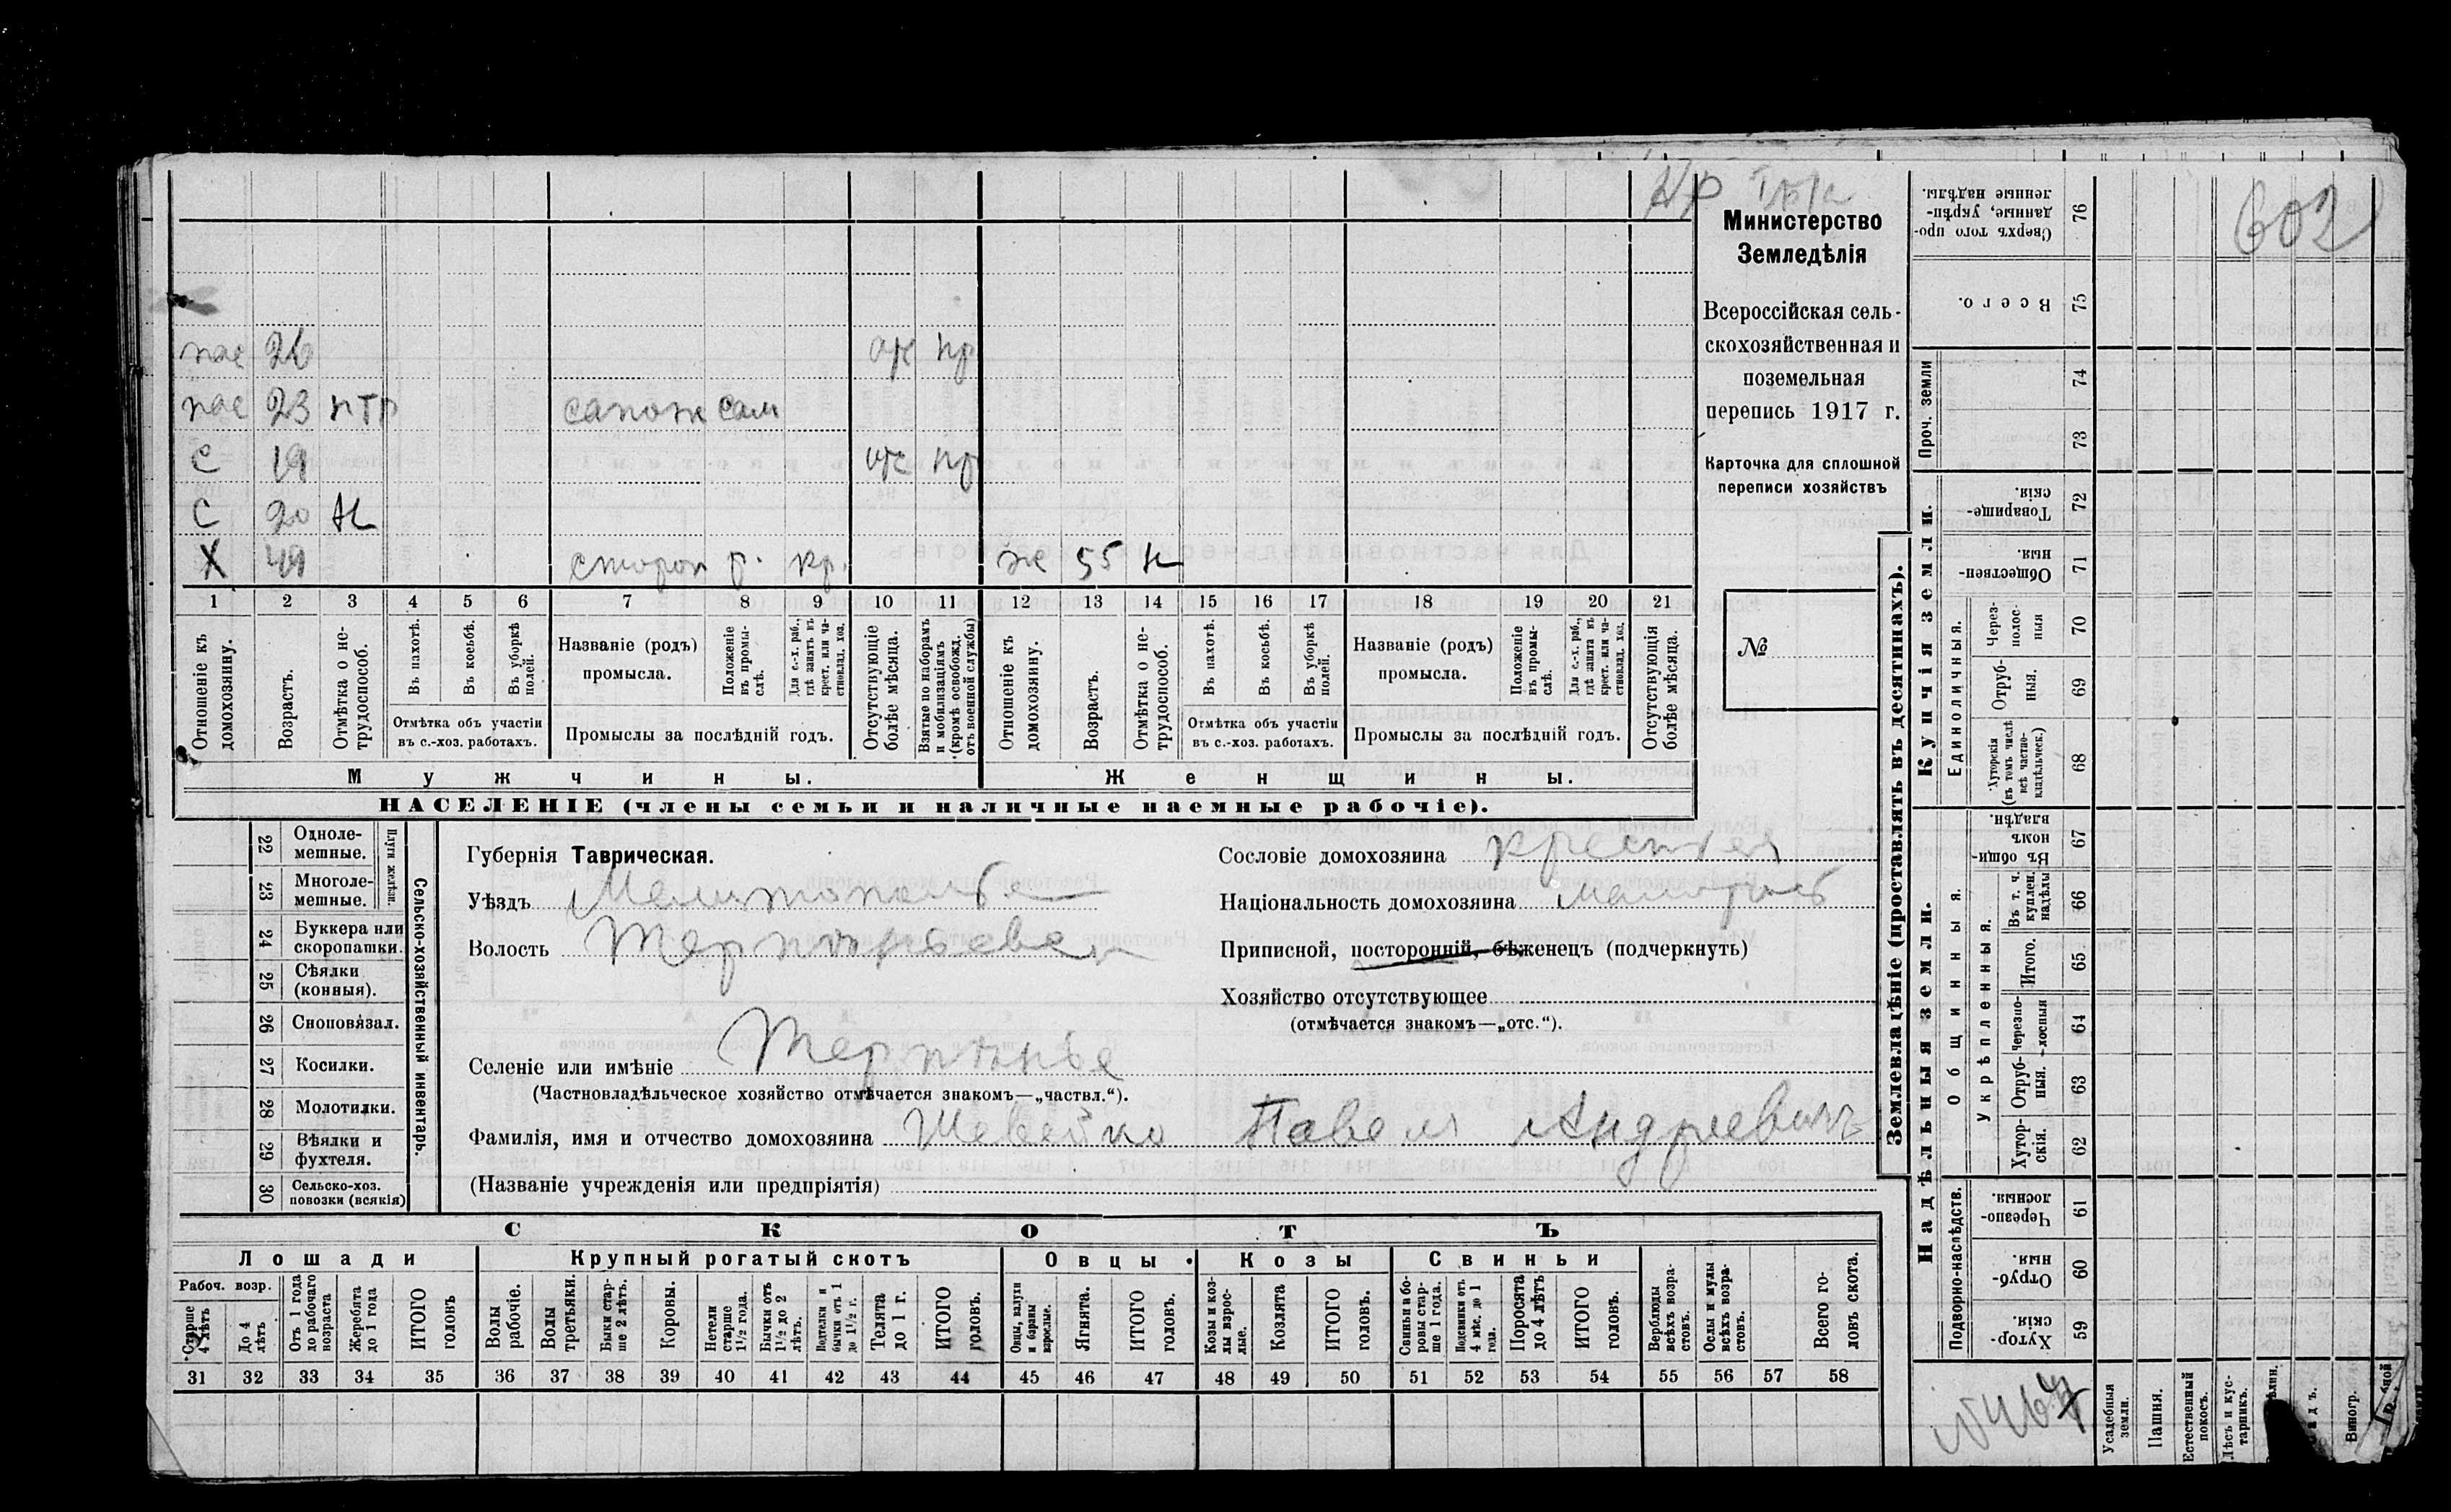 602
Министерство
Земледѣлія
Всероссійская сель-
скохозяйственная и
поземельная
перепись 1917 г.
Карточка для сплошной
переписи хозяйствъ
№
пас 26 отс пр
пас 23 нтр сапож сам
С 19 отс пр
С 20 н
Х 49 сторож р. кр. же 55 н
1 2 3 4 5 6 7 8 9 10 11 12 13 14 15 16 17 18 19 20 21
Отношеніе къ домохозяину.
Возрастъ.
Отмѣтка о не-трудоспособ.
Въ пахотѣ.
Въ косьбѣ.
Въ уборкѣ полей.
Отмѣтка объ участіи
въ с.-хоз. работахъ.
Названіе (родъ)
промысла.
Положеніе въ промы-слѣ.
Для с.-х. раб., гдѣ занятъ въ крест. или ча-стновлад. хоз.
Промыслы за послѣдній годъ.
Отсутствующіе болѣе мѣсяца.
Взятые по наборамъ и мобилизаціямъ (кромѣ освобожд. отъ военной службы)
Отношеніе къ домохозяину.
Возрастъ.
Отмѣтка о не-трудоспособ.
Въ пахотѣ.
Въ косьбѣ.
Въ уборкѣ полей.
Отмѣтка объ участіи
въ с.-хоз. работахъ.
Названіе (родъ)
промысла.
Положеніе въ промы-слѣ.
Для с.-х. раб., гдѣ занята въ крест. или ча-стновлад. хоз.
Промыслы за послѣдній годъ.
Отсутствующія болѣе мѣсяца.
Мужчины.
Женщины.
НАСЕЛЕНІЕ (члены семьи и наличные наемные рабочіе).
22 Одноле-мешные.
23 Многоле-мешные.
Плуги желѣзн.
24 Буккера или скоропашки.
25 Сѣялки (конныя).
26 Сноповязал.
27 Косилки.
28 Молотилки.
29 Вѣялки и фухтеля.
30 Сельско-хоз. повозки (всякія)
Сельско-хозяйственный инвентарь.
Губернія Таврическая.
Уѣздъ Мелитопольс
Волость Терпеньевск
Селеніе или имѣніе Терпенье
(Частновладѣльческое хозяйство отмѣчается знакомъ—„частвл.“).
Фамилія, имя и отчество домохозяина Шевейко Павел Андреевич
(Названіе учрежденія или предпріятія)
Сословіе домохозяина крестьян
Національность домохозяина малорос
Приписной, посторонній, бѣженецъ (подчеркнуть)
Хозяйство отсутствующее
(отмѣчается знакомъ—„отс.“).
СКОТЪ
Лошади
Крупный рогатый скотъ
Овцы
Козы
Свиньи
Рабоч. возр.
Старше 4 лѣтъ
До 4 лѣтъ
Отъ 1 года до рабочаго возраста
Жеребята до 1 года
ИТОГО головъ
Волы рабочіе.
Волы третьяки.
Быки стар-ше 2 лѣтъ.
Коровы.
Нетели старше 1½ года.
Бычки отъ 1½ до 2 лѣтъ.
Подтелки и бычки отъ 1 до 1½ г.
Телята до 1 г.
ИТОГО головъ.
Овцы, валухи и бараны взрослые.
Ягнята.
ИТОГО головъ.
Козы и коз-лы взрос-лые.
Козлята
ИТОГО головъ.
Свиньи и бо-ровы стар-ше 1 года.
Подсвинки отъ 4 мѣс. до 1 года.
Поросята до 4 лѣтъ
ИТОГО головъ.
Верблюды всѣхъ возра-стовъ.
Ослы и мулы всѣхъ возра-стовъ.
Всего го-ловъ скота.
31 32 33 34 35 36 37 38 39 40 41 42 43 44 45 46 47 48 49 50 51 52 53 54 55 56 57 58
Землевладѣніе (проставлять въ десятинахъ).
Купчія земли.
Надѣльныя земли.
Сверхъ того про-данные, укрѣп-ленные надѣлы. 76
Всего. 75
Проч. земли
74
73
Товарище-скія. 72
Обществен-ныя. 71
Единоличныя.
Через-полос-ныя 70
Отруб-ныя. 69
Хуторскія (въ томъ числѣ всѣ частно-владѣльческ.) 68
Общинныя.
Въ общи-номъ владѣн. 67
Укрѣпленныя.
Въ т. ч. куплен. надѣлы 66
Итого. 65
Черезпо-лосныя 64
Отруб-ныя. 63
Хутор-скія. 62
Подворно-наслѣдств.
Черезпо-лосныя. 61
Отруб-ныя. 60
Хутор-скія. 59
Усадебныя земли.
Пашня.
Естественный покосъ.
Лѣсъ и кус-тарникъ.
Виногр.